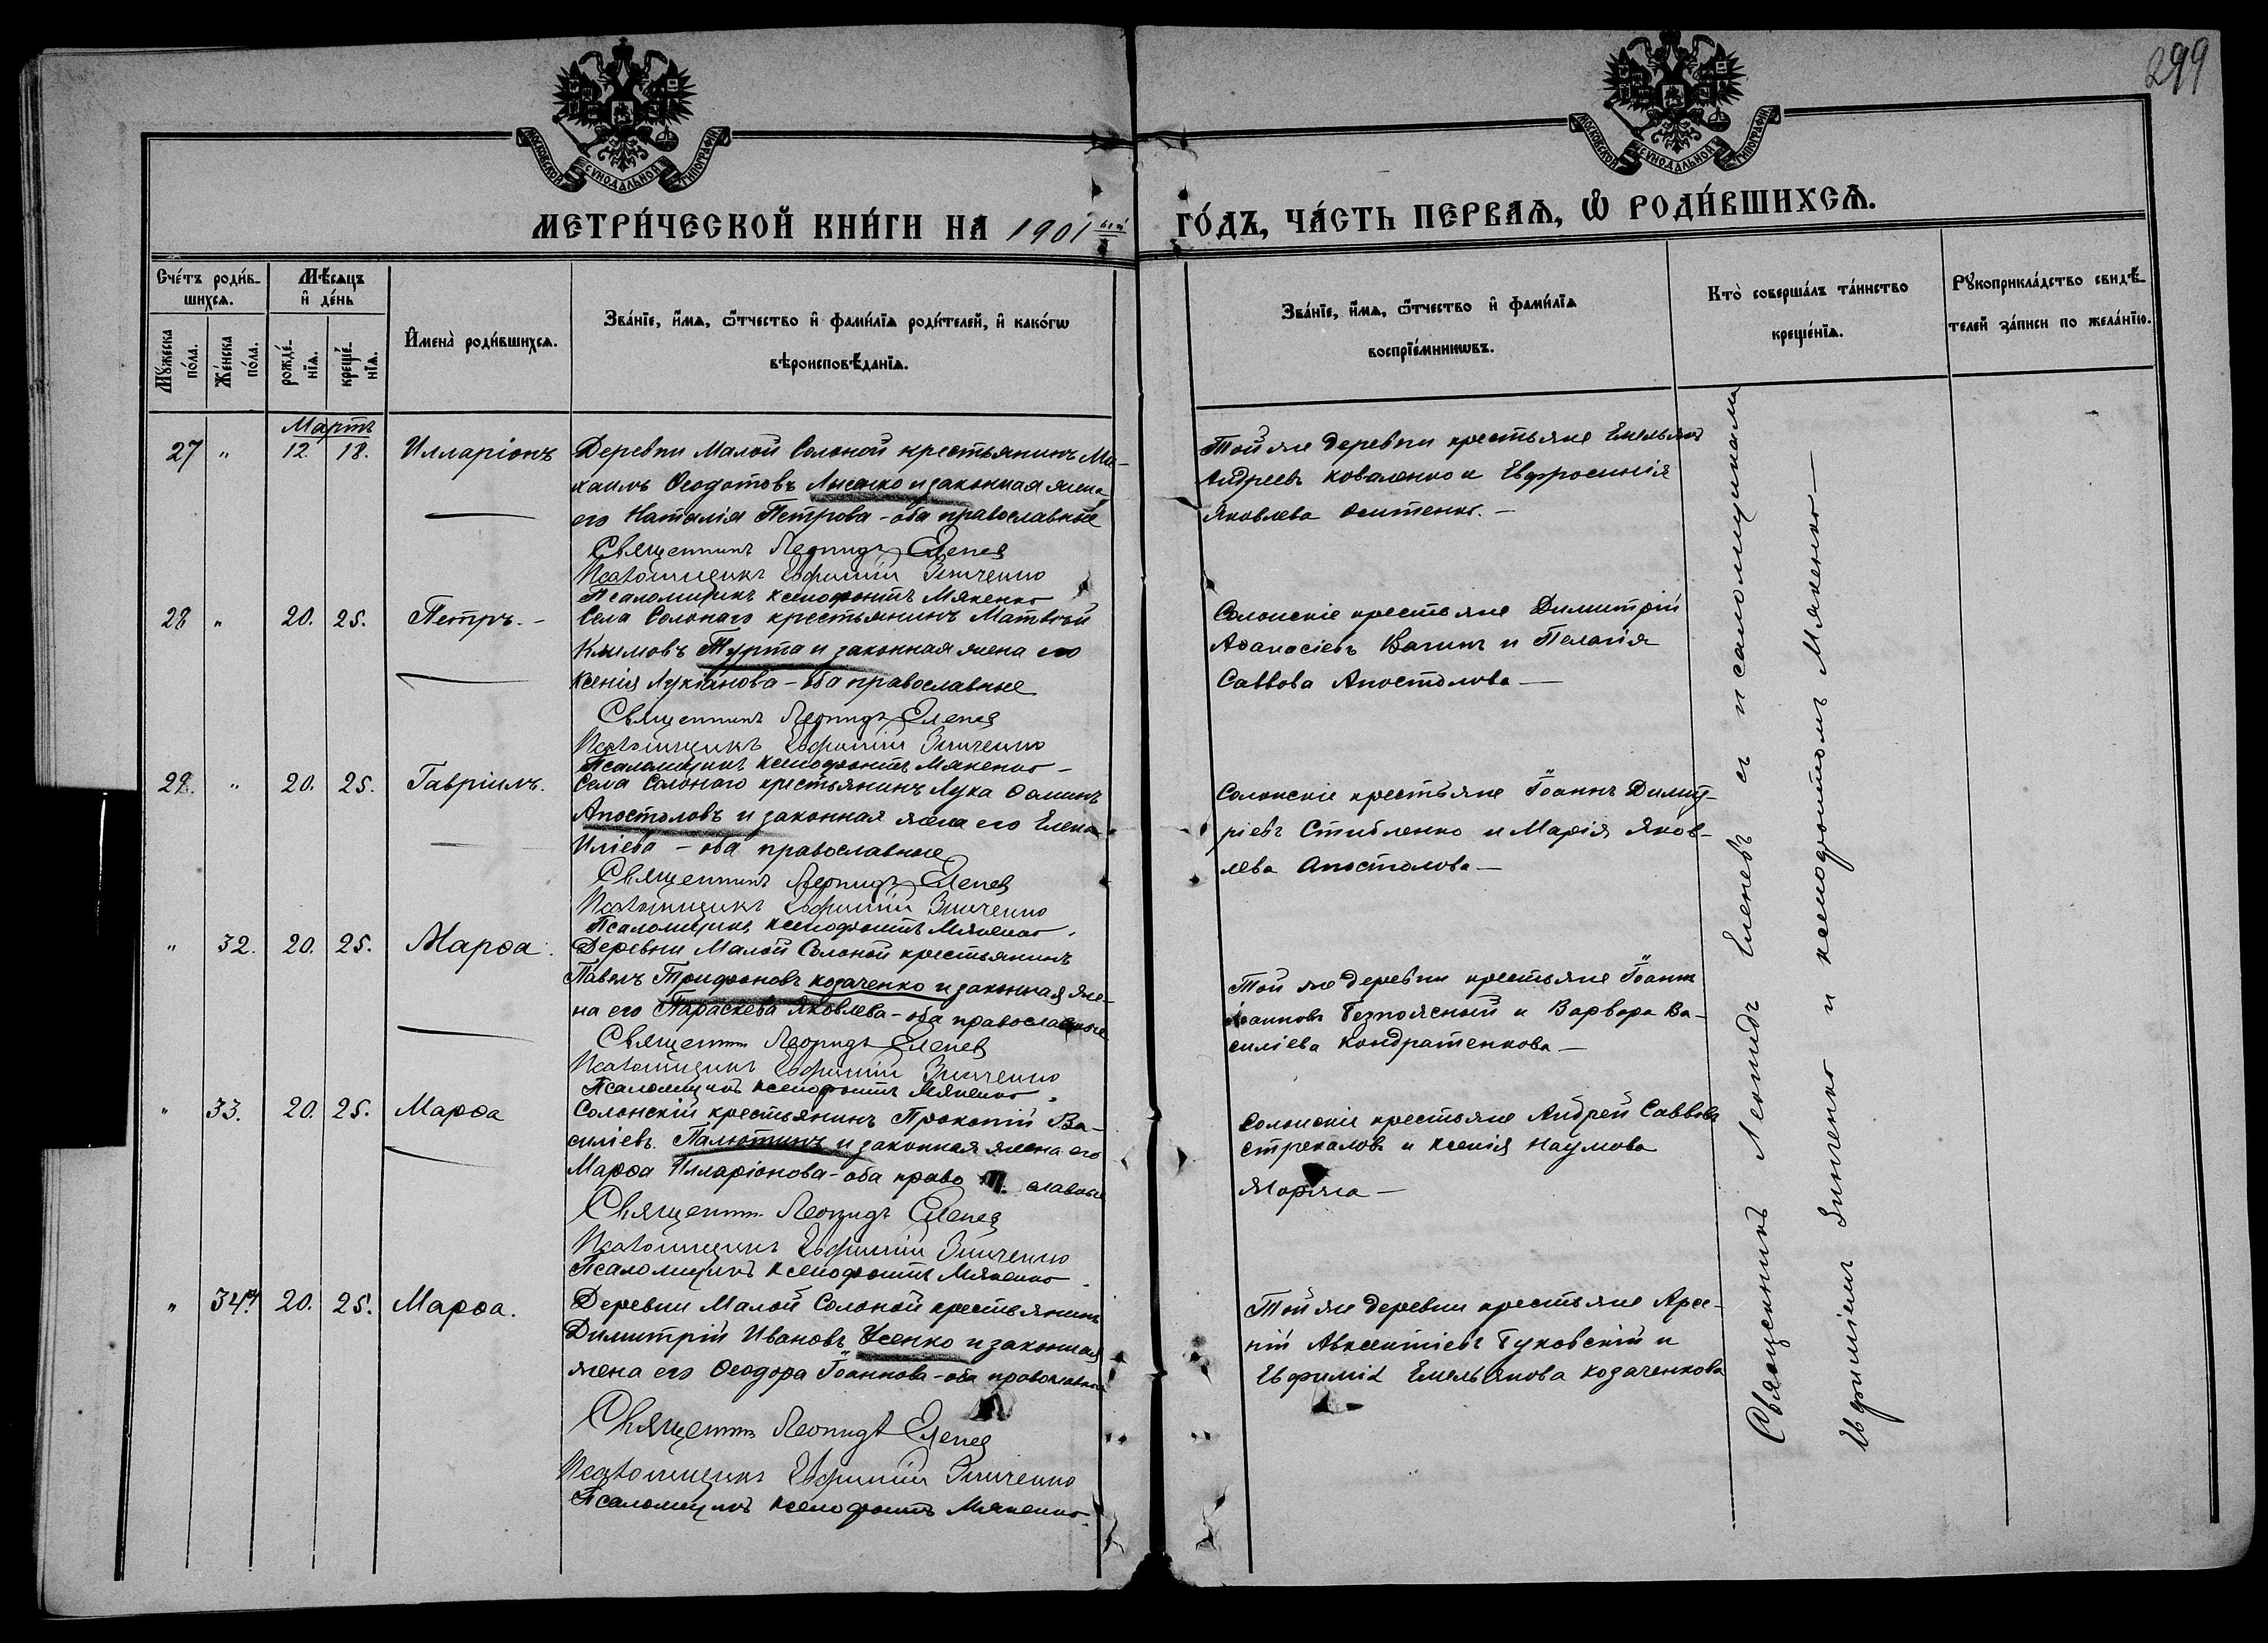 299
МОСКОВСКОЙ СѴНОДАЛЬНОЙ ТИПОГРАФІИ
МОСКОВСКОЙ СѴНОДАЛЬНОЙ ТИПОГРАФІИ
МЕТРИ́ЧЕСКОЙ КНИ́ГИ НА 1901 ГО́ДЪ, ЧА́СТЬ ПЕРВАѦ, Ѡ҆ РОДИ́ВШИХСѦ.
Сче́тъ роди́в-
шихсѧ.
Мꙋжеска по́ла.
Же́нска по́ла.
Мѣ́сѧцъ
и҆ де́нь
рожде́-
нїѧ.
креще́-
нїѧ.
И҆мена̀ роди́вшихсѧ.
Зва́нїе, и҆́мѧ, ѻ҆́тчество и҆ фами́лїѧ роди́телей, и҆ како́гѡ
вѣроисповѣ́данїѧ.
Зва́нїе, и҆́мѧ, ѻ҆́тчество и҆ фами́лїѧ
воспрїе́мникѡвъ.
Кто̀ соверша́лъ та́инство
креще́нїѧ.
Рꙋкоприкла́дство свидѣ́-
телей за́писи по жела́нїю.
Мартъ
27 " 12. 18. Илларіонъ
Деревни Малой Солоной крестьянинъ Ми-
хаилъ Ѳеодотовъ Лысенко и законная жена
его Наталія Петрова - оба православные
Священникъ Леонидъ Еленевъ
Псаломщикъ Евфимій Зинченко
Псаломщикъ Ксенофонтъ Мякенко
Той же деревни крестьяне Емельянъ
Андреевъ Коваленко и Евфросинія
Яковлева Оситенко. -
28 " 20. 25. Петръ. -
Села Солонаго крестьянинъ Матвѣй
Климовъ Турта и законная жена его
Ксенія Лукіанова - оба православные
Священникъ Леонидъ Еленевъ
Псаломщикъ Евфимій Зинченко
Псаломщикъ Ксенофонтъ Мякенко -
Солонскіе крестьяне Димитрій
Аѳанасіевъ Вагинъ и Пелагія
Саввова Апостолова -
29. " 20. 25. Гавріилъ.
Села Солонаго крестьянинъ Лука Ѳоминъ
Апостоловъ и законная жена его Елена
Иліева - оба православные
Священникъ Леонидъ Еленевъ
Псаломщикъ Евфимій Зинченко
Псаломщикъ Ксенофонтъ Мякенко.
Солонскіе крестьяне Іоаннъ Димит-
ріевъ Стибленко и Марія Яков-
лева Апостолова -
" 32. 20. 25. Марѳа.
Деревни Малой Солоной крестьянинъ
Павелъ Трифоновъ Козаченко и законная же-
на его Параскева Яковлева - оба православные
Священникъ Леонидъ Еленевъ
Псаломщикъ Евфимій Зинченко
Псаломщикъ Ксенофонтъ Мякенко.
Той же деревни крестьяне Іоаннъ
Іоанновъ Безпоясный и Варвара Ва-
силіева Кондратенкова -
" 33. 20. 25. Марѳа
Солонскій крестьянинъ Прокопій Ва-
силіевъ Палютинъ и законная жена его
Марѳа Илларіонова - оба право славные
Священникъ Леонидъ Еленевъ
Псаломщикъ Евфимій Зинченко
Псаломщикъ Ксенофонтъ Мякенко.
Солонскіе крестьяне Андрей Саввовъ
Стрекаловъ и Ксенія Наумова
" 34. 20. 25. Марѳа.
Деревни Малой Солоной крестьянинъ
Димитрій Ивановъ Усенко и законная
жена его Ѳеодора Іоаннова - оба православные
Священникъ Леонидъ Еленевъ
Псаломщикъ Евфимій Зинченко
Псаломщикъ Ксенофонтъ Мякенко.
Той же деревни крестьяне Арсе-
ній Авксентіевъ Буковскій и
Евфимія Емельянова Козаченкова
Священникъ Леонидъ Еленевъ съ псаломщиками
Евфиміемъ Зинченко и Ксенофонтомъ Мякенко -